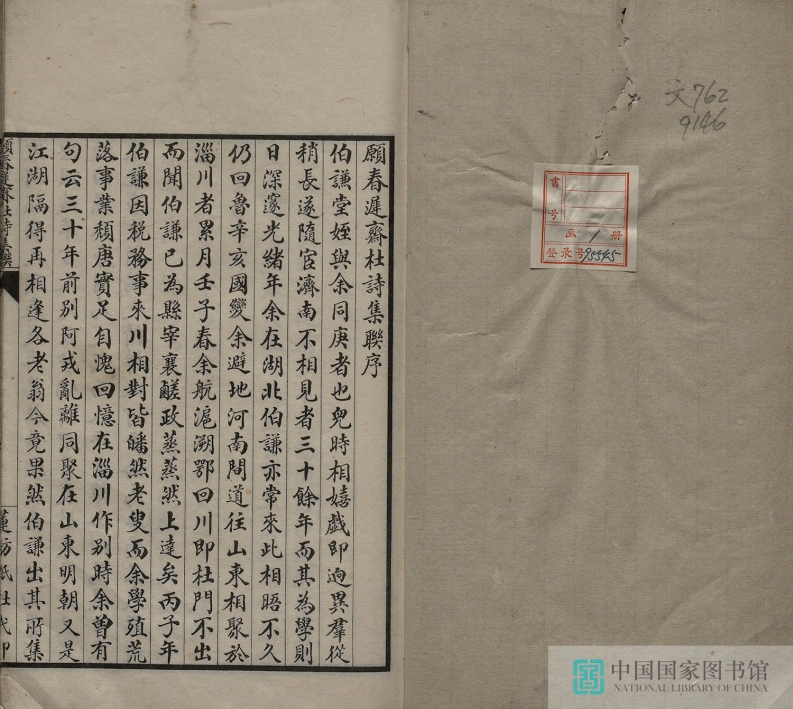 文762
9146
書
号
函 1 册
登录号95545
願春遲齋杜詩集聯序
伯謙堂姪與余同庚者也兒時相嬉戲即逈異羣從
稍長遂隨宦濟南不相見者三十餘年而其為學則
日深邃光緒年余在湖北伯謙亦常來此相晤不久
仍回魯辛亥國變余避地河南間道往山東相聚於
淄川者累月壬子春余航滬溯鄂回川即杜門不出
而聞伯謙已為縣宰襄鹺政蒸蒸然上達矣丙子年
伯謙因税務事來川相對皆皤然老叟而余學殖荒
落事業頹唐實足自愧回憶在淄川作別時余曾有
句云三十年前別阿戎亂離同聚在山東明朝又是
江湖隔得再相逢各老翁今竟果然伯謙出其所集
願春遲齋杜詩集
中国国家图书馆
NATIONAL LIBRARY OF CHINA